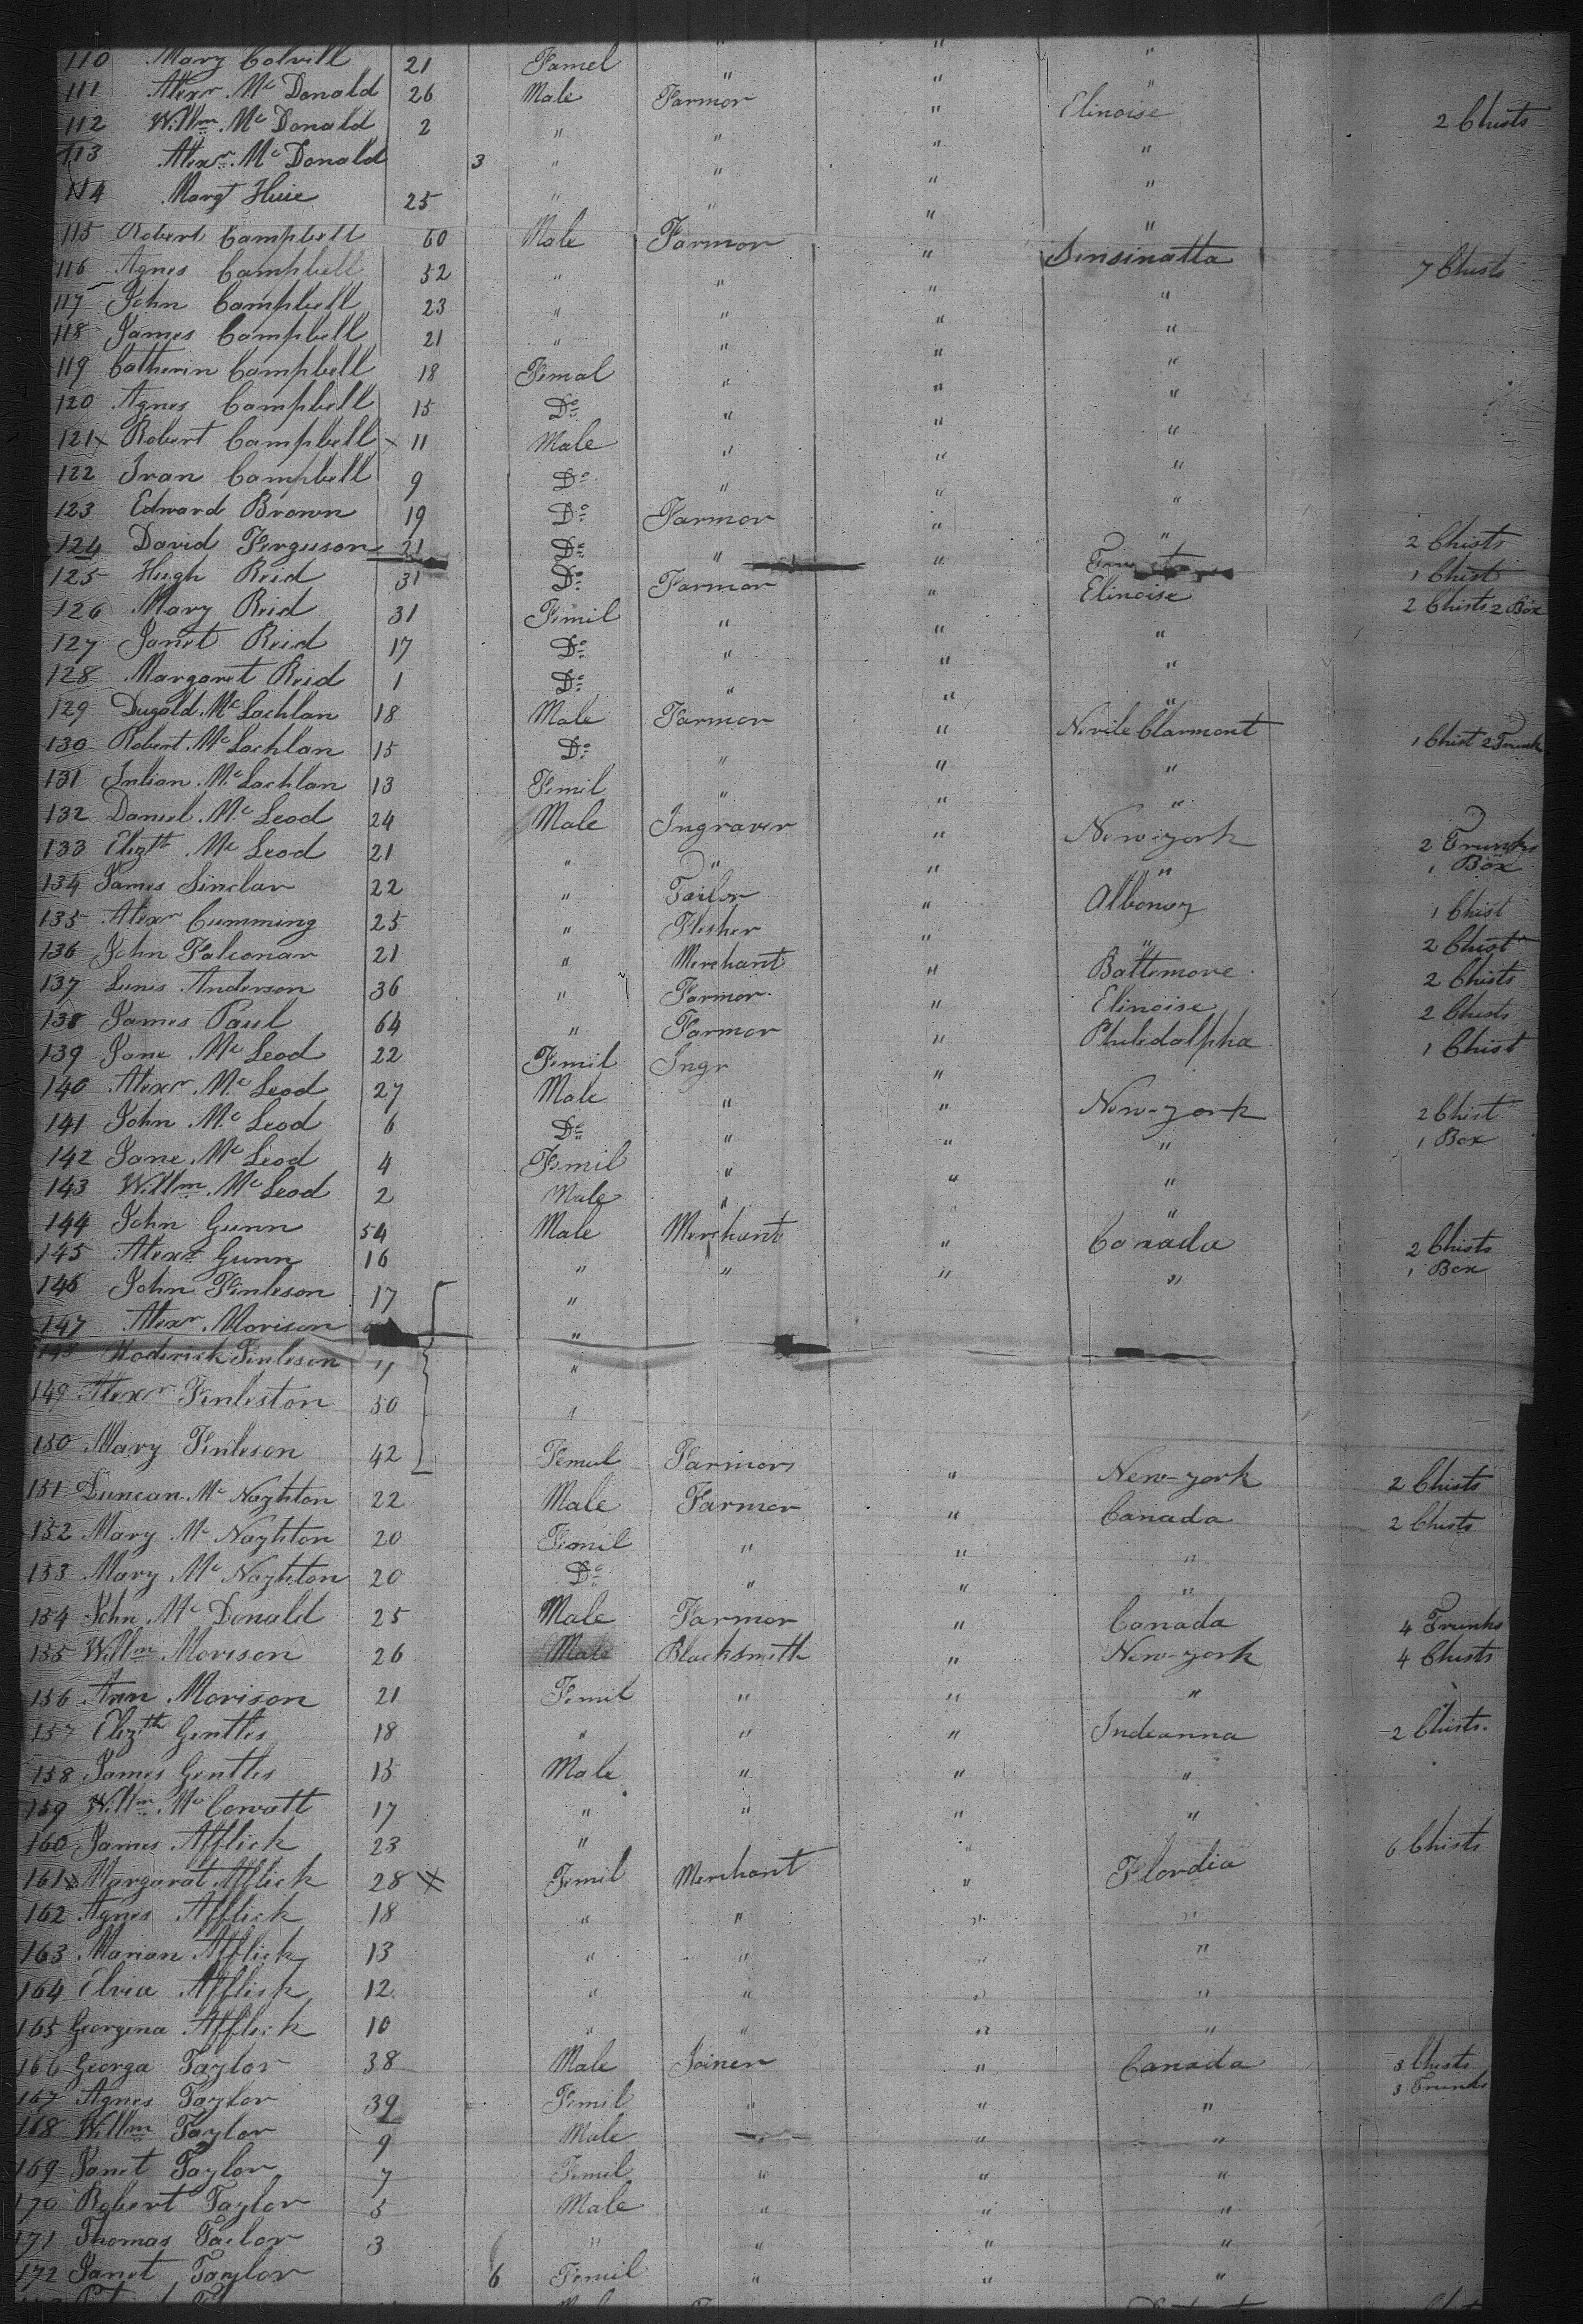 110 Mary Colvill 21 Famel " " "
111 Alexr. Mc Donald 26 Male Farmor " Elinoise 2 Chists
112 Willm. Mc Donald 2 " " " "
113 Alexr. Mc Donald 3 " " " "
114 Margt Huie 25 " " " "
115 Robert Campbell 60 Male Farmor " Sinsinatta 7 Chists
116 Agnes Campbell 52 " " " "
117 John Campbell 23 " " " "
118 James Campbell 21 " " " "
119 Catherin Campbell 18 Femal " " "
120 Agnes Campbell 15 Do " " "
121x Robert Campbell x 11 Male " " "
122 Ivan Campbell 9 Do " " "
123 Edward Brown 19 Do Farmor " "
124 David Ferguson 21 Do " " 2 Chists
125 Hugh Reid 31 Do Farmor " Elinoise 1 Chist
126 Mary Reid 31 Femil " " " 2 Chists 2 Box
127 Janet Reid 17 Do " " "
128 Margaret Reid 1 Do " " "
129 Dugald Mc Lachlan 18 Male Farmor " Nevile Clarmont 1 Chist 2 Trunk
130 Robert Mc Lachlan 15 Do " " "
131 Julian Mc Lachlan 13 Femil " " "
132 Daniel Mc Leod 24 Male Ingraver " New-york 2 Trunks
133 Elizth Mc Leod 21 " " " " 1 Box
134 James Sinclar 22 " Tailor " Albeney 1 Chist
135 Alexr Cumming 25 " Flesher " " 2 Chist
136 John Falconar 21 " Merchant " Baltemore 2 Chists
137 Lunis Anderson 36 " Farmor " Elinoise 2 Chists
138 James Paul 64 " Farmor " Philedalpha 1 Chist
139 Jane Mc Leod 22 Femil Ingr "
140 Alexr Mc Leod 27 Male " " New-york 2 Chist
141 John Mc Leod 6 Do " " " 1 Box
142 Jane Mc Leod 4 Femil " " "
143 Willm Mc Leod 2 Male " " "
144 John Gunn 54 Male Merchant " Canada 2 Chists
145 Alexr Gunn 16 " " " " 1 Box
146 John Finleson 17 "
147 Alexr Morison "
148 Roderick Finleson 11 "
149 Alexr Finleston 50 "
150 Mary Finleson 42 Femul Farmors " New-york 2 Chists
151 Duncan Mc Naghton 22 Male Farmor " Canada 2 Chists
152 Mary Mc Naghton 20 Femil " " "
153 Mary Mc Naghton 20 Do " " "
154 John Mc Donald 25 Male Farmor " Canada 4 Trunks
155 Willm Morison 26 Male Blacksmith " New-york 4 Chists
156 Ann Morison 21 Femil " " "
157 Elizth Gentles 18 " " " Indeanna 2 Chists
158 James Gentles 15 Male " " "
159 Willm Mc Cowatt 17 " " " "
160 James Afflick 23 " " 6 Chists
161x Margarat Afflick 28 x Femil Merchant " Flordia
162 Agnes Afflick 18 " " " "
163 Marian Afflick 13 " " " "
164 Elvia Afflick 12 " " " "
165 Georgina Afflick 10 " " " "
166 Georga Taylor 38 Male Joiner " Canada 3 Chists
167 Agnes Taylor 39 Femil " " " 3 Trunks
168 Willm Taylor 9 Male " " "
169 Janet Taylor 7 Femil " " "
170 Robert Taylor 5 Male " " "
171 Thomas Tailor 3 " " " "
172 Janet Taylor 6 Femil " " "